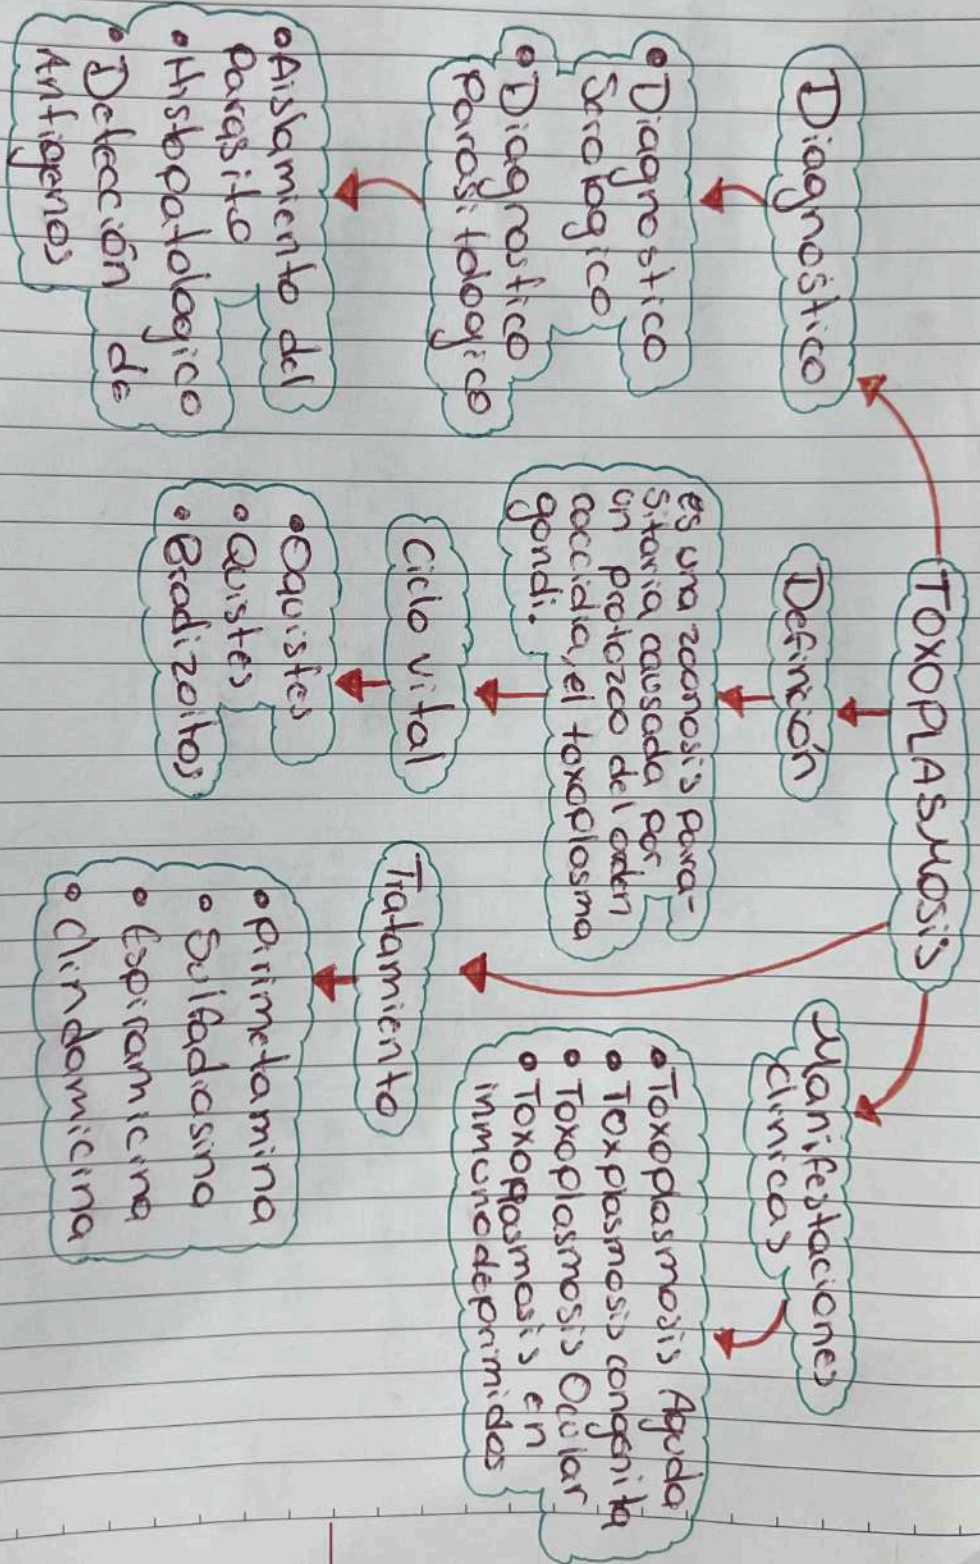 TOXOPLASMOSIS
Diagnóstico
• Diagnostico
Serologico
• Diagnostico
Parasitologico
• Aislamiento del
Parasito
• Histopatologico
• Detección de
Antigenos
Definición
es una zoonosis para-
sitaria causada por
un protozoo del orden
coccidia, el toxoplasma
gondi.
Ciclo vital
• Oquistes
• Quistes
• Bradizoitos
Tratamiento
• Pirimetamina
• Sulfadiasina
• Espiramicina
• Clindamicina
Manifestaciones
clinicas
• Toxoplasmosis Aguda
• Toxplasmosis congenita
• Toxoplasmosis Ocular
• Toxoplasmosis en
inmunodeprimidos